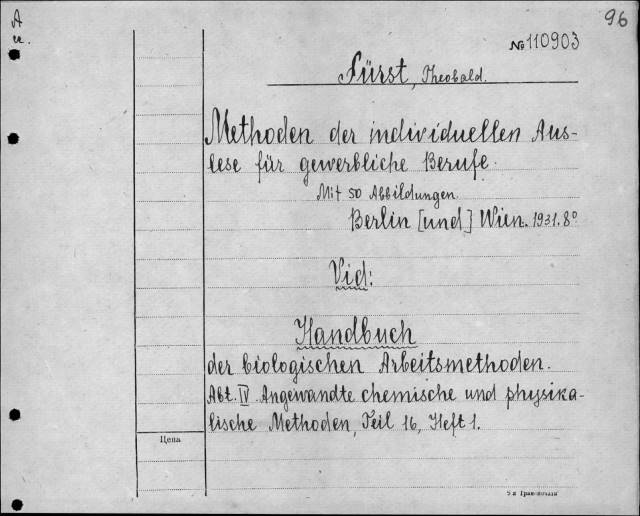 А
и.
96
№ 110903
Fürst, Theobald.
Methoden der individuellen Aus-
lese für gewerbliche Berufe.
Mit 50 Abbildungen.
Berlin [und] Wien. 1931. 8°
Vid:
Handbuch
der biologischen Arbeitsmethoden.
Abt. IV. Angewandte chemische und physika-
lische Methoden, Teil 16, Heft 1.
Цена